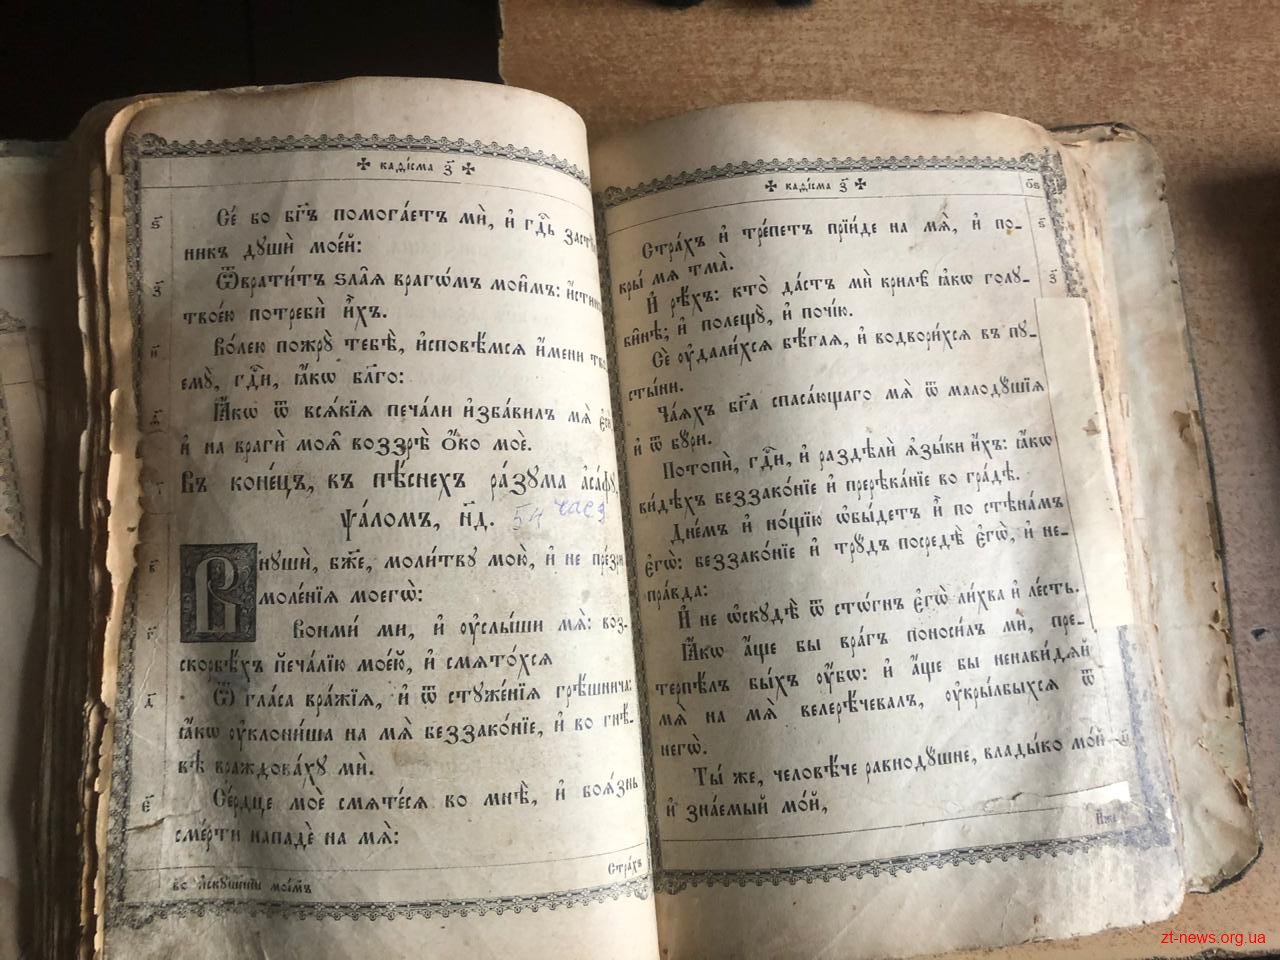 ✠ каѳі́сма з҃ ✠
ѕ҃
Се́ бо бг҃ъ помога́етъ мѝ, и҆ гдⷭ҇ь
никъ дꙋшѝ мое́й:
з҃
Ѿврати́тъ ѕла̑ѧ врагѡ́мъ мои̑мъ:
твое́ю потребѝ и҆́хъ.
и҃
Во́лею пожрꙋ̀ тебѣ̀, и҆сповѣ́мсѧ и҆́мени
емꙋ̀, гдⷭ҇и, ꙗ҆́кѡ бл҃го:
ѳ҃
Ꙗ҆́кѡ ѿ всѧ́кїѧ печа́ли и҆зба́вилъ мѧ̀
и҆ на врагѝ моѧ̑ воззрѣ̀ ѻ҆́ко моѐ.
Въ коне́цъ, въ пѣ́снехъ ра́зꙋма а҆са́фꙋ,
ѱало́мъ, н҃д. 54
в҃
Внꙋшѝ, бж҃е, моли́твꙋ мою̀, и҆ не
моле́нїѧ моегѡ̀:
г҃
Вонми́ ми, и҆ ᲂу҆слы́ши мѧ̀: воз-
скорбѣ́хъ печа́лїю мое́ю, и҆ смѧто́хсѧ
д҃
Ѿ гла́са вра́жїѧ, и҆ ѿ стꙋже́нїѧ грѣ́шнича:
ꙗ҆́кѡ ᲂу҆клони́ша на мѧ̀ беззако́нїе, и҆ во гнѣ́-
вѣ враждова́хꙋ мѝ.
є҃
Се́рдце моѐ смѧте́сѧ во мнѣ̀, и҆ боѧ́знь
сме́рти нападѐ на мѧ̀:
Стра́хъ
✠ каѳі́сма з҃ ✠
о҃ѕ
ѕ҃
Стра́хъ и҆ тре́петъ прїи́де на мѧ̀, и҆ по-
кры́ мѧ тма̀.
з҃
И҆ рѣ́хъ: кто̀ да́стъ мѝ крилѣ̑ ꙗ҆́кѡ голꙋ-
би̑нѣ; и҆ полещꙋ̀, и҆ почі́ю.
Сѐ ᲂу҆дали́хсѧ бѣ́гаѧ, и҆ водвори́хсѧ въ пꙋ-
сты́ни.
Ча́ѧхъ бг҃а спаса́ющаго мѧ̀ ѿ малодꙋ́шїѧ
и҆ ѿ бꙋ́ри.
Потопѝ, гдⷭ҇и, и҆ раздѣлѝ ѧ҆зы́ки и҆́хъ: ꙗ҆́кѡ
ви́дѣхъ беззако́нїе и҆ пререка́нїе во гра́дѣ.
Дне́мъ и҆ но́щїю ѡ҆бы́детъ и҆̀ по стѣна́мъ
є҆гѡ̀: беззако́нїе и҆ трꙋ́дъ посредѣ̀ є҆гѡ̀, и҆ не-
пра́вда:
И҆ не ѡ҆скꙋдѣ̀ ѿ стѡ́гнъ є҆гѡ̀ ли́хва и҆ ле́сть.
Ꙗ҆́кѡ а҆́ще бы вра́гъ поноси́лъ мѝ, пре-
терпѣ́лъ бы́хъ ᲂу҆́бѡ: и҆ а҆́ще бы ненави́дѧй
мѧ̀ на мѧ̀ велерѣ́чевалъ, ᲂу҆кры́лбыхсѧ ѿ
негѡ̀.
Ты́ же, человѣ́че равнодꙋ́шне, влады́ко мо́й
и҆ зна́емый мо́й,
zt-news.org.ua